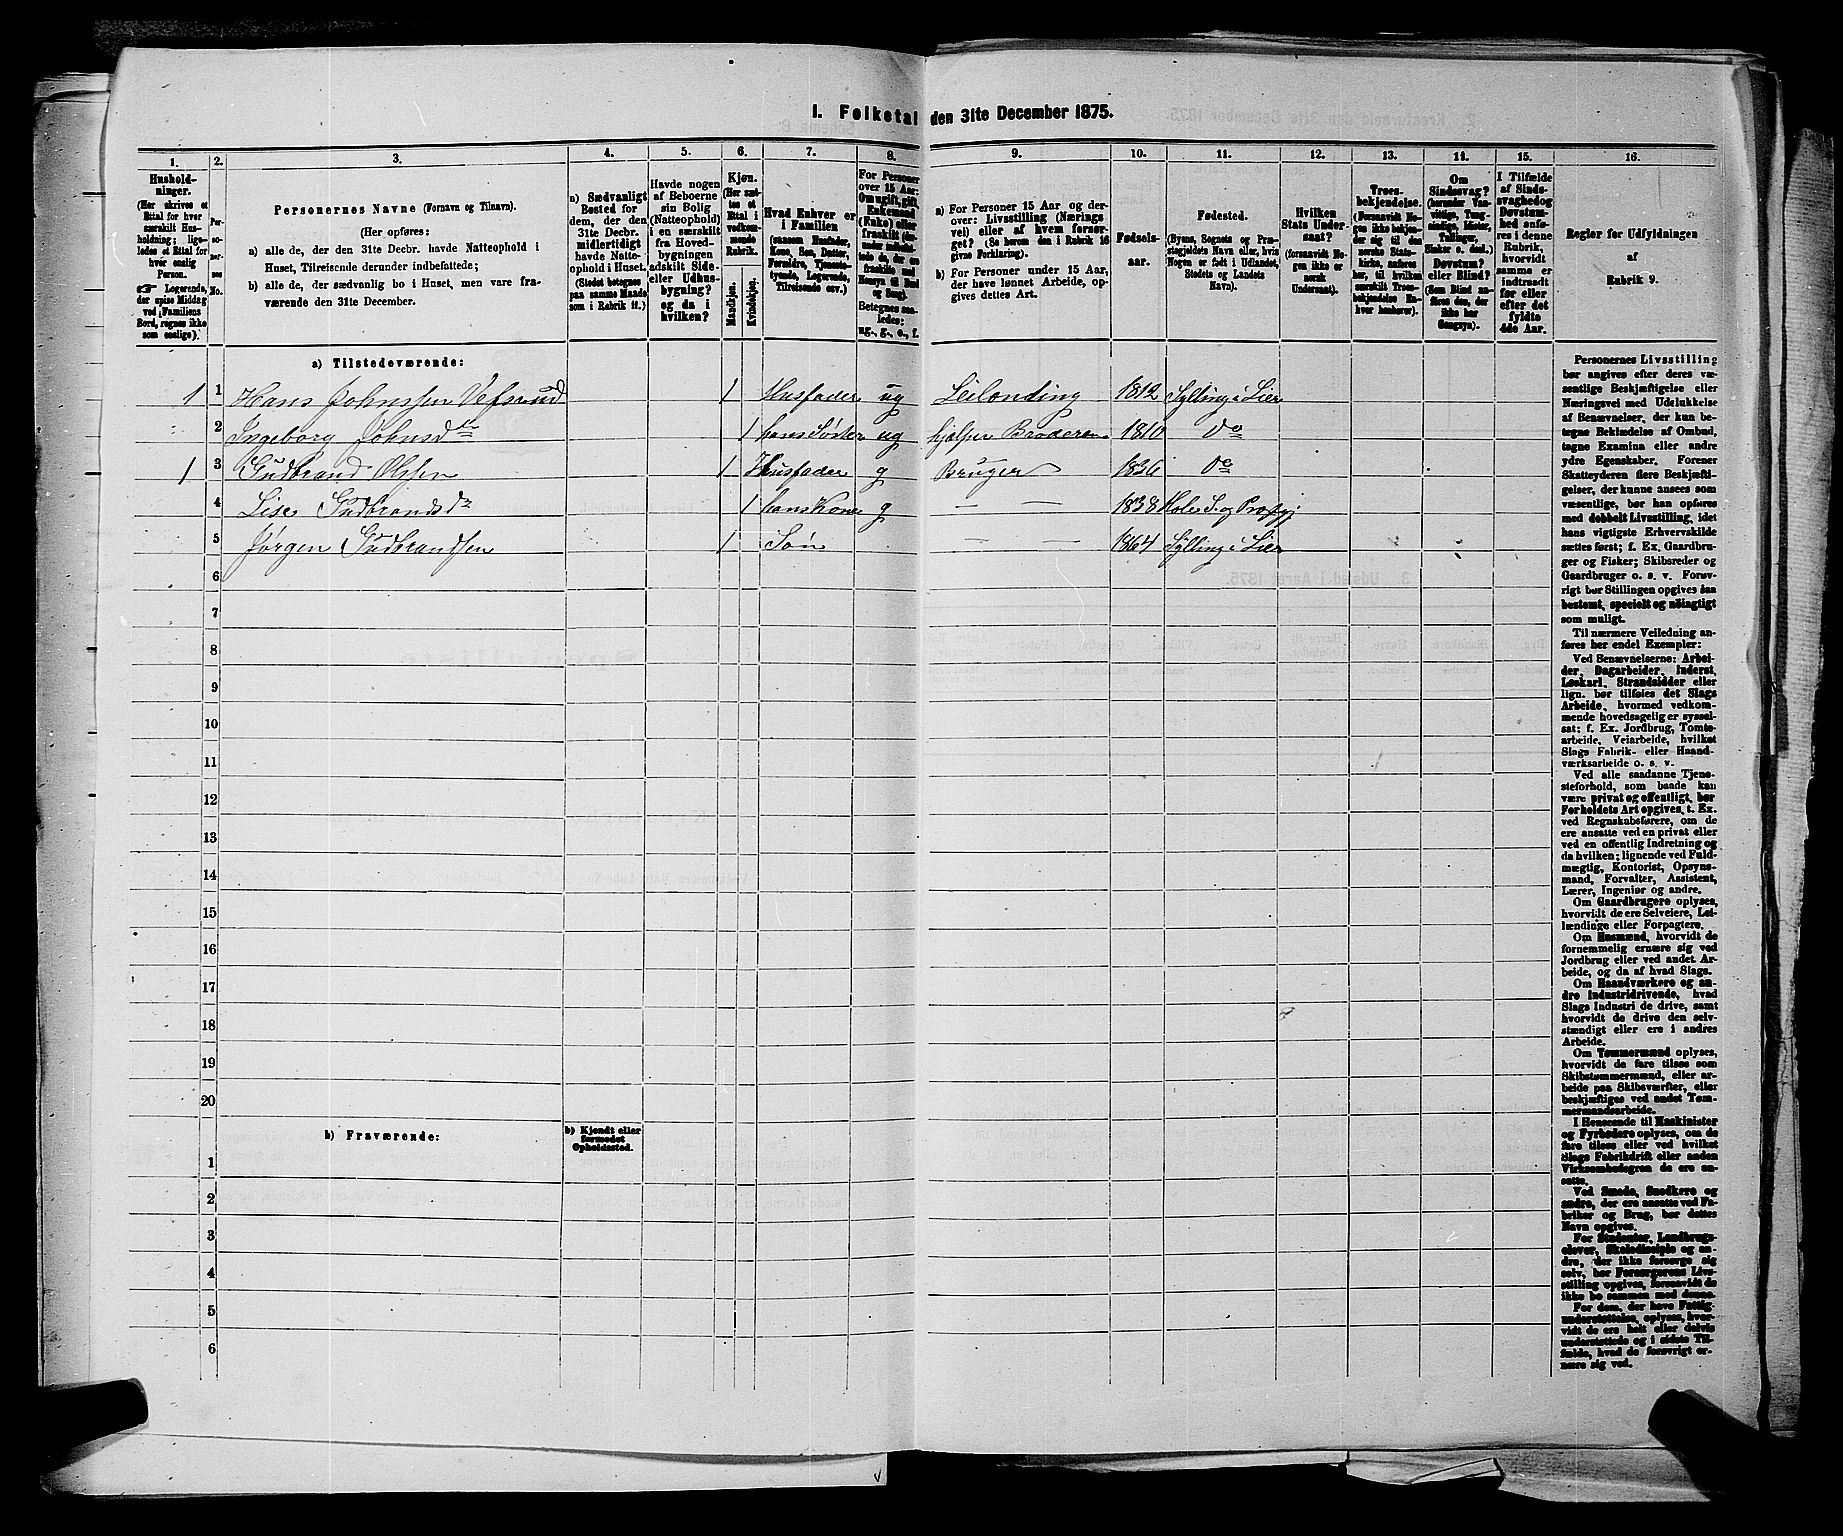 I. Folketal den 31te December 1875.
1. 2. 3. 4. 5. 6. 7. 8. 9. 10. 11. 12. 13. 14. 15. 16.
Hushold-
ninger.
(Her skrives et
Ettal for hver
særskilt Hus-
holdning; lige-
ledes et Ettal for
hver enslig
Person.
☞ Logerende,
der spise Middag
ved Familiens
Bord, regnes ikke
som enslige).
Per-
so-
ner-
nes
No.
Personernes Navne (Fornavn og Tilnavn).
(Her opføres:
a) alle de, der den 31te Decbr. havde Natteophold i
Huset, Tilreisende derunder indbefattede;
b) alle de, der sædvanlig bo i Huset, men vare fra-
værende den 31te December.)
a) Sædvanligt
Bosted for
dem, der den
31te Decbr.
midlertidigt
havde Natte-
ophold i Huset.
(Stedet betegnes
paa samme Maade
som i Rubrik 11.)
Havde nogen
af Beboerne
sin Bolig
(Natteophold)
i en særskilt
fra Hoved-
bygningen
adskilt Side-
eller Udhus-
bygning?
og da i
hvilken?
Kjøn.
(Her sæt-
tes et
Ettal i
vedkom-
mende
Rubrik.
Mandkjøn.
Kvindekjøn.
Hvad Enhver er
i Familien
(saasom Husfader,
Kone, Søn, Datter,
Forældre, Tjeneste-
tyende, Logerende,
Tilreisende osv.)
For Personer
over 15 Aar:
Om ugift, gift,
Enkemand
(Enke) eller
fraskilt
Betegnes saa-
ledes:
ug., g., e., f.
a) For Personer 15 Aar og der-
over: Livsstilling (Nærings-
vei) eller af hvem forsør-
get? (Se herom den i Rubrik 16
givne Forklaring).
b) For Personer under 15 Aar,
der have lønnet Arbeide, op-
gives dettes Art.
Fødsels-
aar.
Fødested.
(Byens, Sognets og Præ-
stegjeldets Navn eller, hvis
Nogen er født i Udlandet,
Stedets og Landets
Navn).
Hvilken
Stats Under-
saat?
(forsaavidt No-
gen ikke er
norsk
Undersaat).
Troes-
bekjendelse.
(Forsaavidt No-
gen ikke bekjen-
der sig til den
norske Stats-
kirke, anføres
her, til hvilken
særskilt Troes-
bekjendelse En-
hver henhører).
Om
Sindssvag?
(herunder Van-
vittige, Tung-
sindige, Idioter,
Tullinger,
Sinker o. desl.)
Døvstum?
eller Blind?
(Som Blind an-
føres den, der
ikke har
Gangsyn).
I Tilfælde
af Sinds-
svaghed og
Døvstum-
hed anfø-
res i denne
Rubrik,
hvorvidt
samme er
indtraadt
før eller
efter det
fyldte
4de Aar.
Regler for Udfyldningen
af
Rubrik 9.
a) Tilstedeværende:
1 1 Hans Johnssen Vefsrud 1 Husfader ug Leilending 1812 Sylling i Lier
2 Ingeborg Johnsdtr 1 hans Søster ug hjælper Broderen 1810 Do
1 3 Gudbrand Olssen 1 Husfader g Bruger 1836 Do
4 Lise Gudbrandsdtr 1 hans Kone g — — 1838 Hole S. og Præstgj
5 Jørgen Gudbrandsen 1 Søn — — 1864 Sylling i Lier
6
7
8
9
10
11
12
13
14
15
16
17
18
19
20
b) Fraværende:
b) Kjendt eller
formodet
Opholdssted.
1
2
3
4
5
6
Personernes Livsstilling
bør angives efter deres væ-
sentlige Beskjæftigelse eller
Næringsvei med Udelukkelse
af Benævnelser, der kun be-
tegne Beklædelse af Ombud,
tagne Examina eller andre
ydre Egenskaber. Forener
Skatteyderen flere Beskjæfti-
gelser, der kunne ansees som
væsentlige, bør han opføres
med dobbelt Livsstilling, idet
hans vigtigste Erhvervskilde
sættes først; f. Ex. Gaardbru-
ger og Fisker; Skibsreder og
Gaardbruger o. s. v. Forøv-
rigt bør Stillingen opgives saa
bestemt, specielt og nøiagtigt
som muligt.
Til nærmere Veiledning an-
føres her endel Exempler:
Ved Benævnelserne: Arbei-
der, Dagarbeider, Inderst,
Løskarl, Strandsidder eller
lign. bør tilføies det Slags
Arbeide, hvormed vedkom-
mende hovedsagelig er syssel-
sat: f. Ex. Jordbrug, Tomte-
arbeide, Veiarbeide, hvilket
Slags Fabrik- eller Haand-
værksarbeide o. s. v.
Ved alle saadanne Tjene-
steforhold, som baade kan
være privat og offentligt, bør
Forholdets Art opgives, t. Ex.
ved Regnskabsførere, om de
ere ansatte ved en privat eller
ved en offentlig Indretning og
da hvilken; lignende ved Fuld-
mægtig, Kontorist, Opsyns-
mand, Forvalter, Assistent,
Lærer, Ingeniør og andre.
Om Gaardbrugere oplyses,
hvorvidt de ere Selveiere, Lei-
lændinge eller Forpagtere.
Om Husmænd, hvorvidt de
fornemmelig ernære sig ved
Jordbrug eller ved andet Ar-
beide, og da af hvad Slags.
Om Haandværkere og an-
dre Industridrivende, hvad
Slags Industri de drive, samt
hvorvidt de drive den selv-
stændigt eller ere i andres
Arbeide.
Om Tømmermænd oplyses,
hvorvidt de fare tilsøs som
Skibstømmermænd, eller ar-
beide paa Skibsværfter, eller
beskjæftiges ved andet Tøm-
mermandsarbeide.
I Henseende til Maskinister
og Fyrbødere oplyses, om de
fare tilsøs eller ved hvilket
Slags Fabrikdrift eller anden
Virksomhedsgren de ere an-
satte.
Ved Smede, Snedkere og
andre, der ere ansatte ved Fa-
briker og Brug, bør dettes
Navn opgives.
For Studenter, Landbrugs-
elever, Skoledisciple og an-
dre, der ikke forsørge sig
selv, bør Forsørgerens Livs-
stilling opgives, forsaavidt de
ikke bo sammen med denne.
For dem, der have Fattig-
understøttelse, oplyses, hvor-
vidt de ere helt eller delvis
understøttede og i sidste Til-
fælde, hvad de forøvrigt er-
nære sig ved.